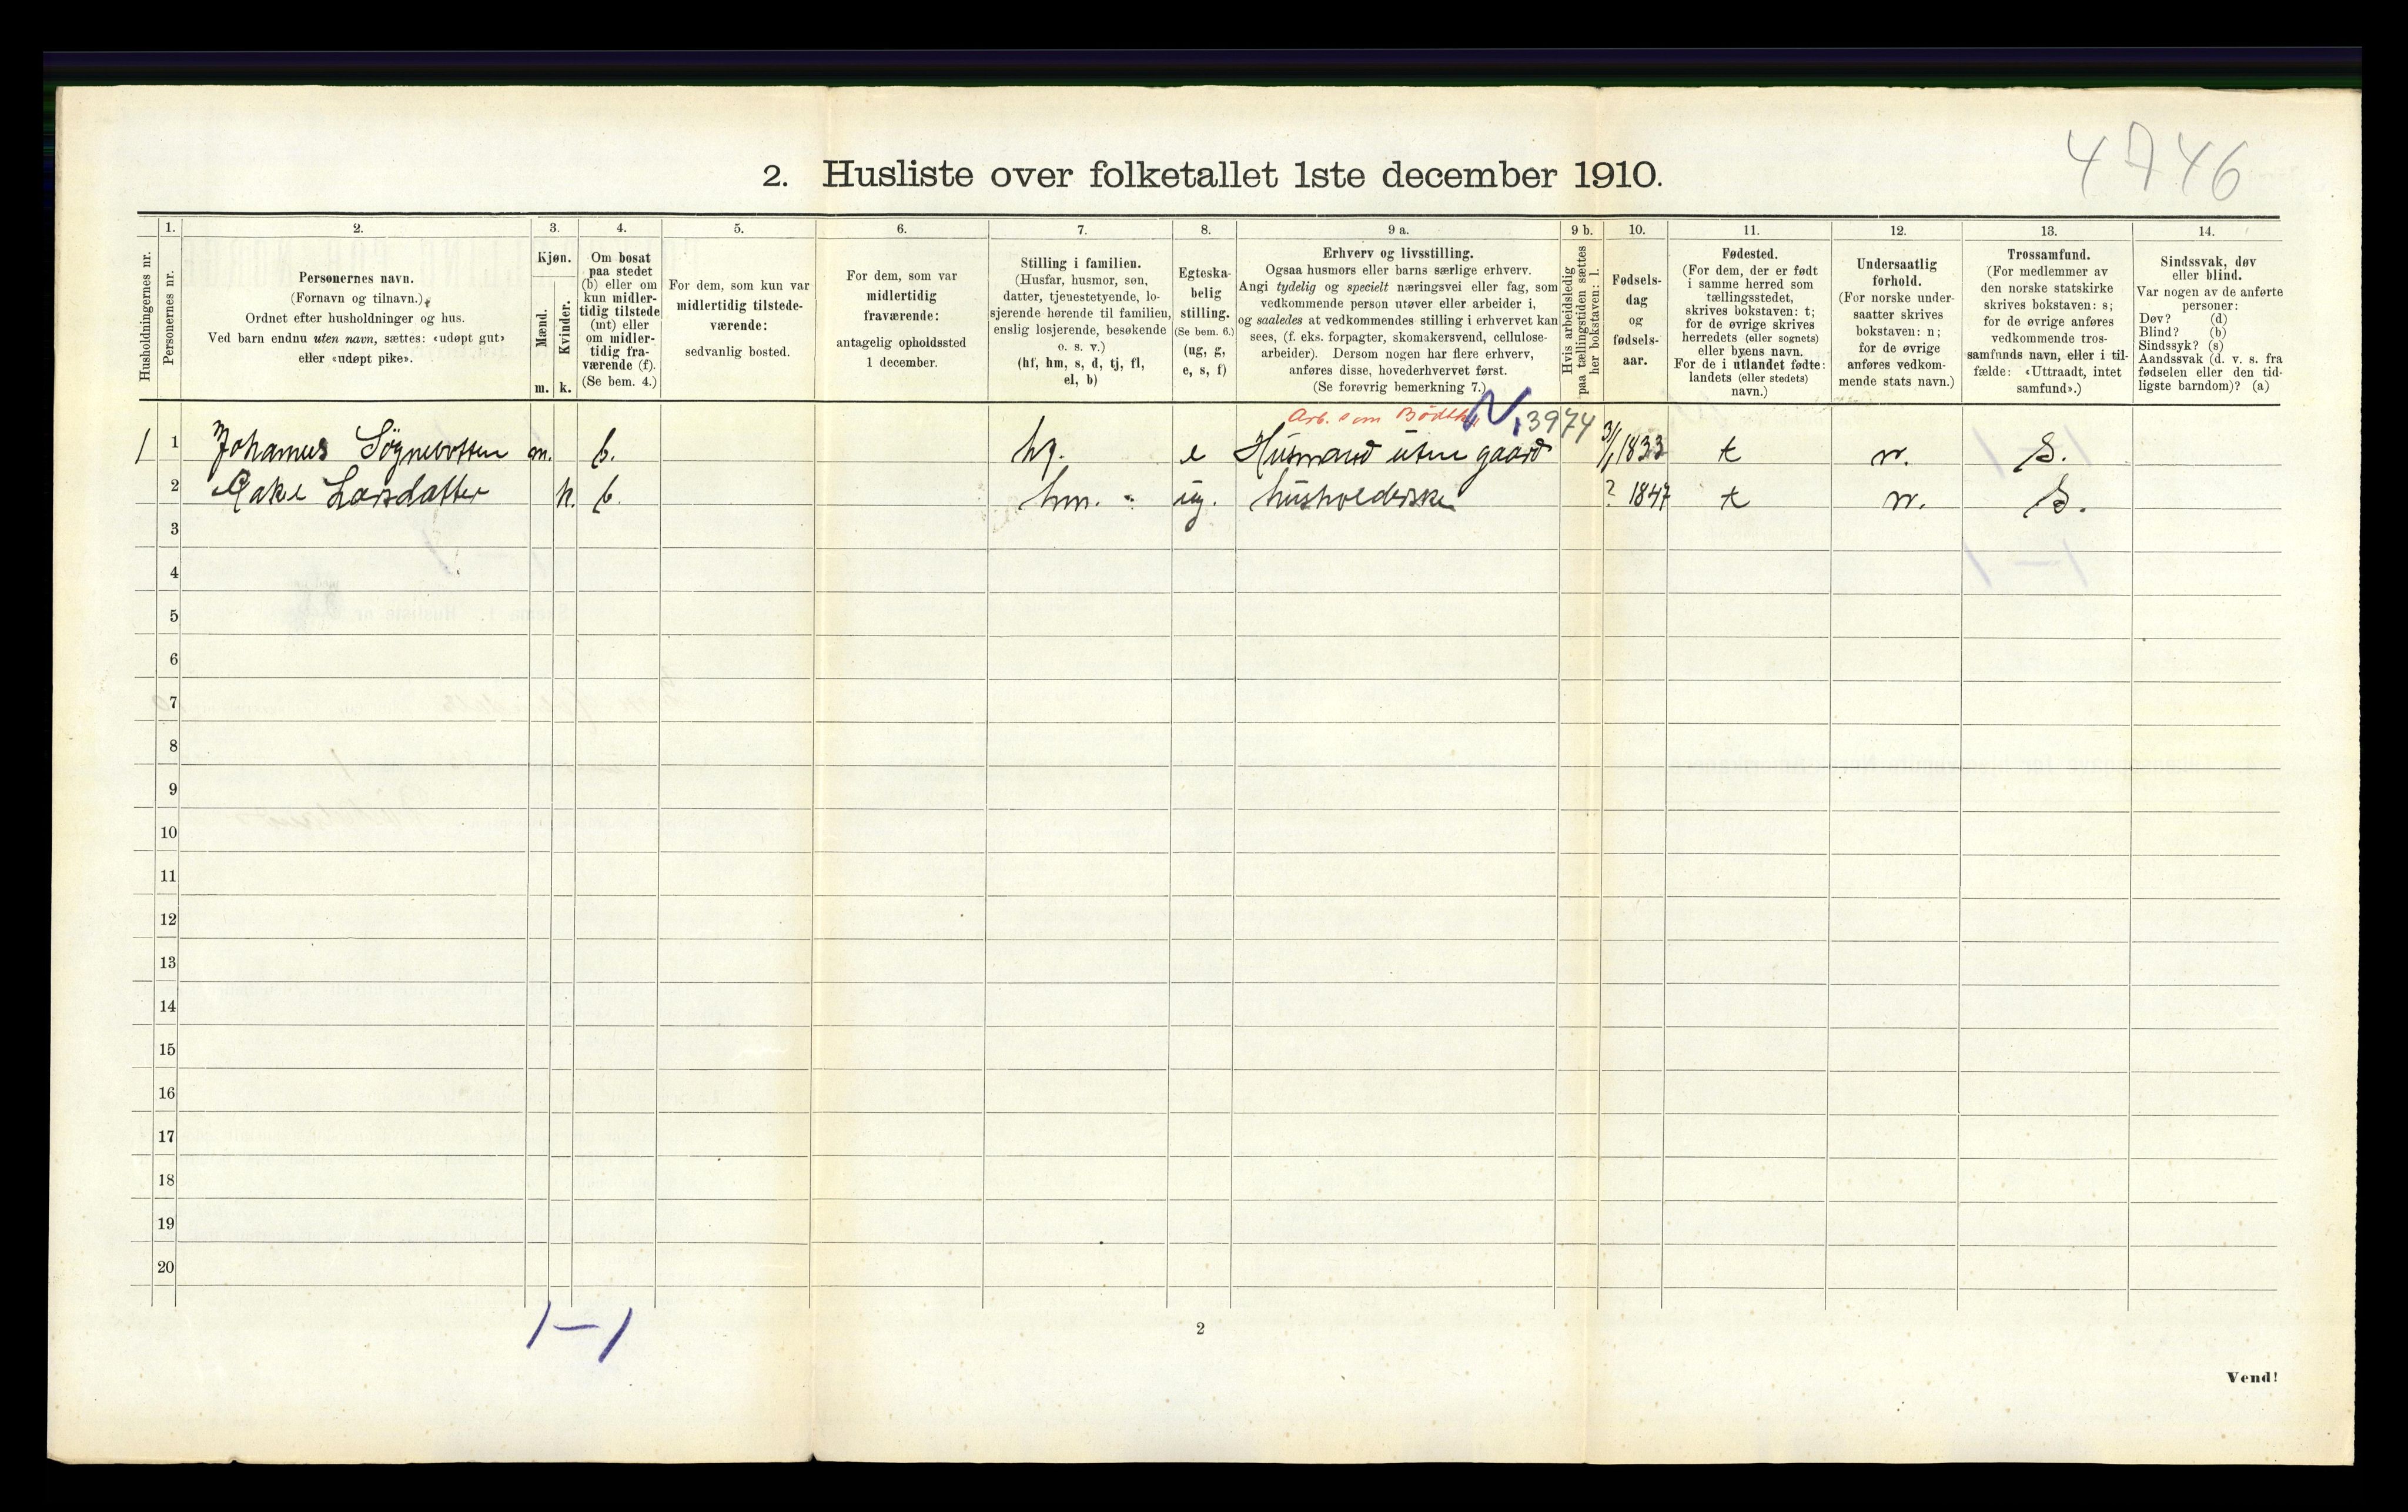 4746
2. Husliste over folketallet 1ste december 1910.
Husholdningernes nr.
1.
Personernes nr.
2.
Personernes navn.
(Fornavn og tilnavn.)
Ordnet efter husholdninger og hus.
Ved barn endnu uten navn, sættes: «udøpt gut»
eller «udøpt pike».
3.
Kjøn.
Mænd.
Kvinder.
m. k.
4.
Om bosat
paa stedet
(b) eller om
kun midler-
tidig tilstede
(mt) eller
om midler-
tidig fra-
værende (f).
(Se bem. 4.)
5.
For dem, som kun var
midlertidig tilstede-
værende:
sedvanlig bosted.
6.
For dem, som var
midlertidig
fraværende:
antagelig opholdssted
1 december.
7.
Stilling i familien.
(Husfar, husmor, søn,
datter, tjenestetyende, lo-
sjerende hørende til familien,
enslig losjerende, besøkende
o. s. v.)
(hf, hm, s, d, tj, fl,
el, b)
8.
Egteska-
belig
stilling.
(Se bem. 6.)
(ug, g,
e, s, f)
9 a.
Erhverv og livsstilling.
Ogsaa husmors eller barns særlige erhverv.
Angi tydelig og specielt næringsvei eller fag, som
vedkommende person utøver eller arbeider i,
og saaledes at vedkommendes stilling i erhvervet kan
sees, (f. eks. forpagter, skomakersvend, cellulose-
arbeider). Dersom nogen har flere erhverv,
anføres disse, hovederhvervet først.
(Se forøvrig bemerkning 7.)
9 b.
Hvis arbeidsledig
paa tællingstiden sættes
her bokstaven: l.
10.
Fødsels-
dag
og
fødsels-
aar.
11.
Fødested.
(For dem, der er født
i samme herred som
tællingsstedet,
skrives bokstaven: t;
for de øvrige skrives
herredets (eller sognets)
eller byens navn.
For de i utlandet fødte:
landets (eller stedets)
navn.)
12.
Undersaatlig
forhold.
(For norske under-
saatter skrives
bokstaven: n;
for de øvrige
anføres vedkom-
mende stats navn.)
13.
Trossamfund.
(For medlemmer av
den norske statskirke
skrives bokstaven: s;
for de øvrige anføres
vedkommende tros-
samfunds navn, eller i til-
fælde: «Uttraadt, intet
samfund».)
14.
Sindssvak, døv
eller blind.
Var nogen av de anførte
personer:
Døv? (d)
Blind? (b)
Sindssyk? (s)
Aandssvak (d. v. s. fra
fødselen eller den tid-
ligste barndom)? (a)
Arb. som N, 3974
1 1 Johannes m. b. hf. e Husmand uten gaard 3/1 1833 t n. S.
2 Larsdatter k. b. hm. ug. husholderske ? 1847 t n. S.
3
4
5
6
7
8
9
10
11
12
13
14
15
16
17
18
19
20
1-1
2
Vend!